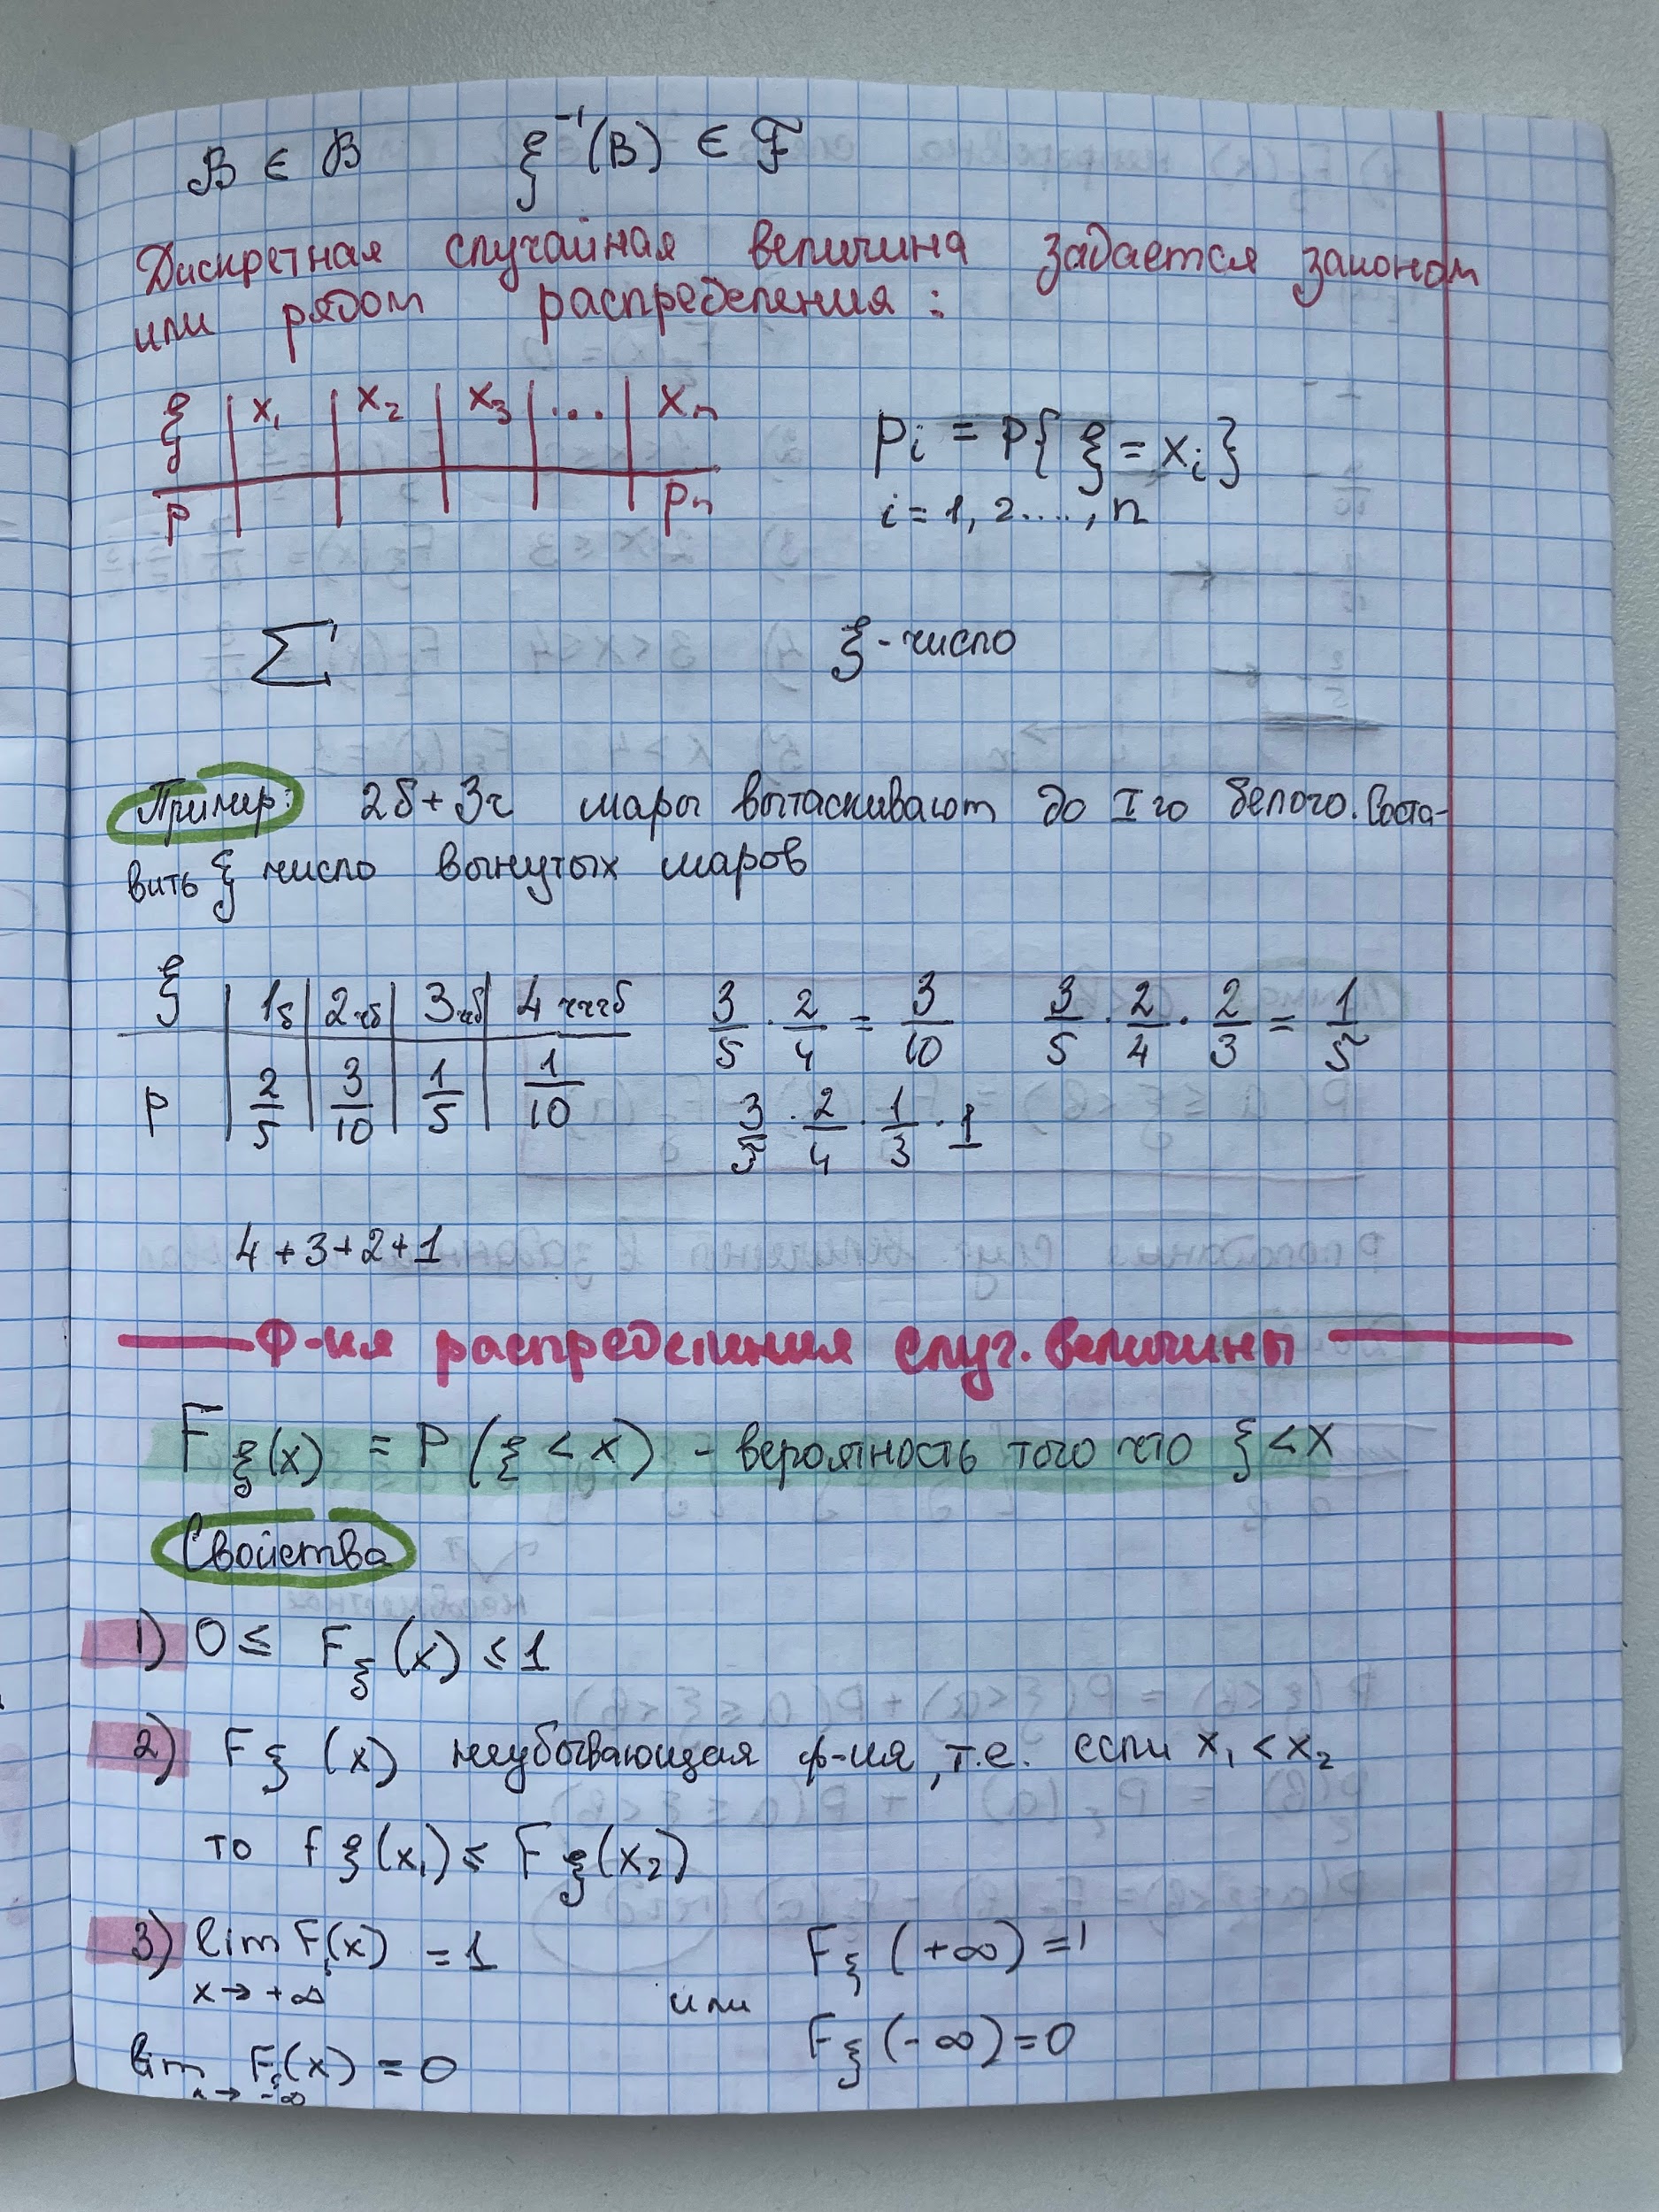 B ∈ ℬ ξ⁻¹(B) ∈ ℱ
Дискретная случайная величина задается законом
или рядом распределения:
ξ | x₁ | x₂ | x₃ | ... | xₙ
p | | | | | pₙ
pᵢ = P{ ξ = xᵢ }
i = 1, 2...., n
∑ ξ - число
Пример: 2б + 3ч шары вытаскивают до I го белого. Соста-
вить ξ число вынутых шаров
ξ | 1б | 2чб | 3ччб | 4 чччб
p | 2/5 | 3/10 | 1/5 | 1/10
3/5 · 2/4 = 3/10 3/5 · 2/4 · 2/3 = 1/5
3/5 · 2/4 · 1/3 · 1
4+3+2+1
Ф-ия распределения случ. величины
F ξ(x) = P (ξ < x) - вероятность того что ξ < x
Свойства
1) 0 ≤ F ξ (x) ≤ 1
2) F ξ (x) неубывающая ф-ия, т.е. если x₁ < x₂
то F ξ(x₁) ≤ F ξ(x₂)
3) lim F(x) = 1
x → +∞
или
F ξ (+∞) = 1
F ξ (-∞) = 0
lim Fξ(x) = 0
x → -∞